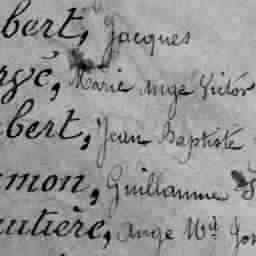 bert, Jacques
rgé, Marie Ange Victor
bert, Jean Baptiste
mon, Guillaume
utière, Ange Md Jos